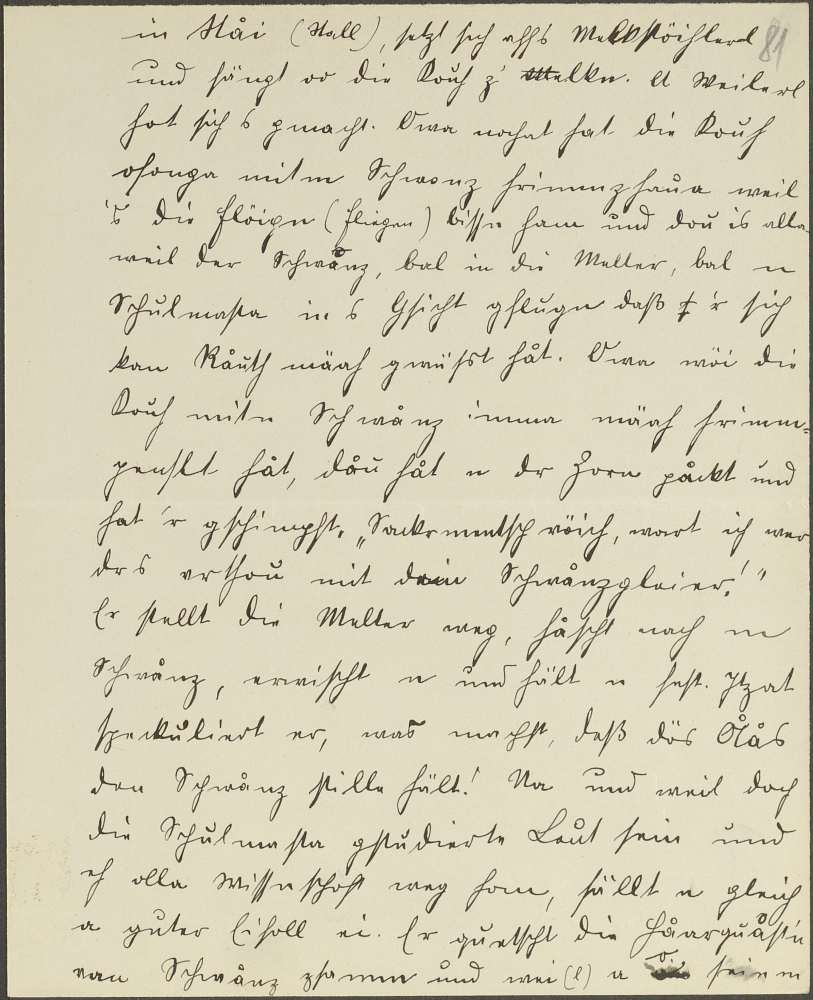 81
in Ståi (Stall), setzt sich affs Melkstöihlerl
und fängt oo die Kouh z' melkn. A Weilerl
hot sich s gmacht. Owa nochat hat die Kouh
ofonga mitm Schwanz hrimmzhaua weil
's die Flöign (Fliegen) bissn ham und dou is alla-
weil der Schwånz, bal in die Melter, bal n
Schulmasta in s Gsicht gflugn daß 'r sich
kan Råuth määh gwüßt håt. Owa wöi die
Kouh mitn Schwånz imma määh hrimm-
penslt håt, dåu håt n dr Zorn påckt und
hat 'r gschimpft, „Sackrmentsch vöich, wart ich wer
drs vrthou mit dein Schwånzgloier!"
Er stellt die Melter weg, håscht nach n
Schwånz, erwischt n und hält n fest. Itzat
spekuliert er, was machst, daß dös Åås
den Schwånz stille hält! Na und weil doch
die Schulmasta gstudierte Leut sein und
eh olla Wissnschoft weg hom, fällt n gleich
a guter Eifoll ei. Er quetscht die Håarquåstn
van Schwånz zsamm und wei(l) a seinn